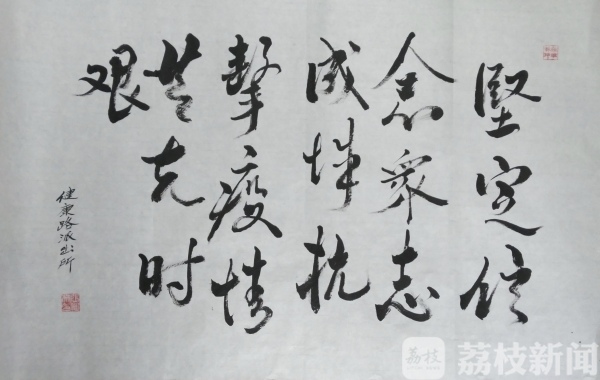 堅定信
念眾志
成城抗
擊疫情
共克时
艰
健康路派出所
荔枝
荔枝新闻